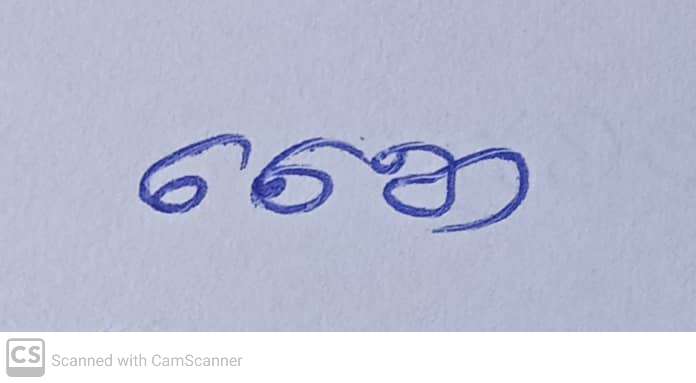 ജൈ
CS Scanned with CamScanner